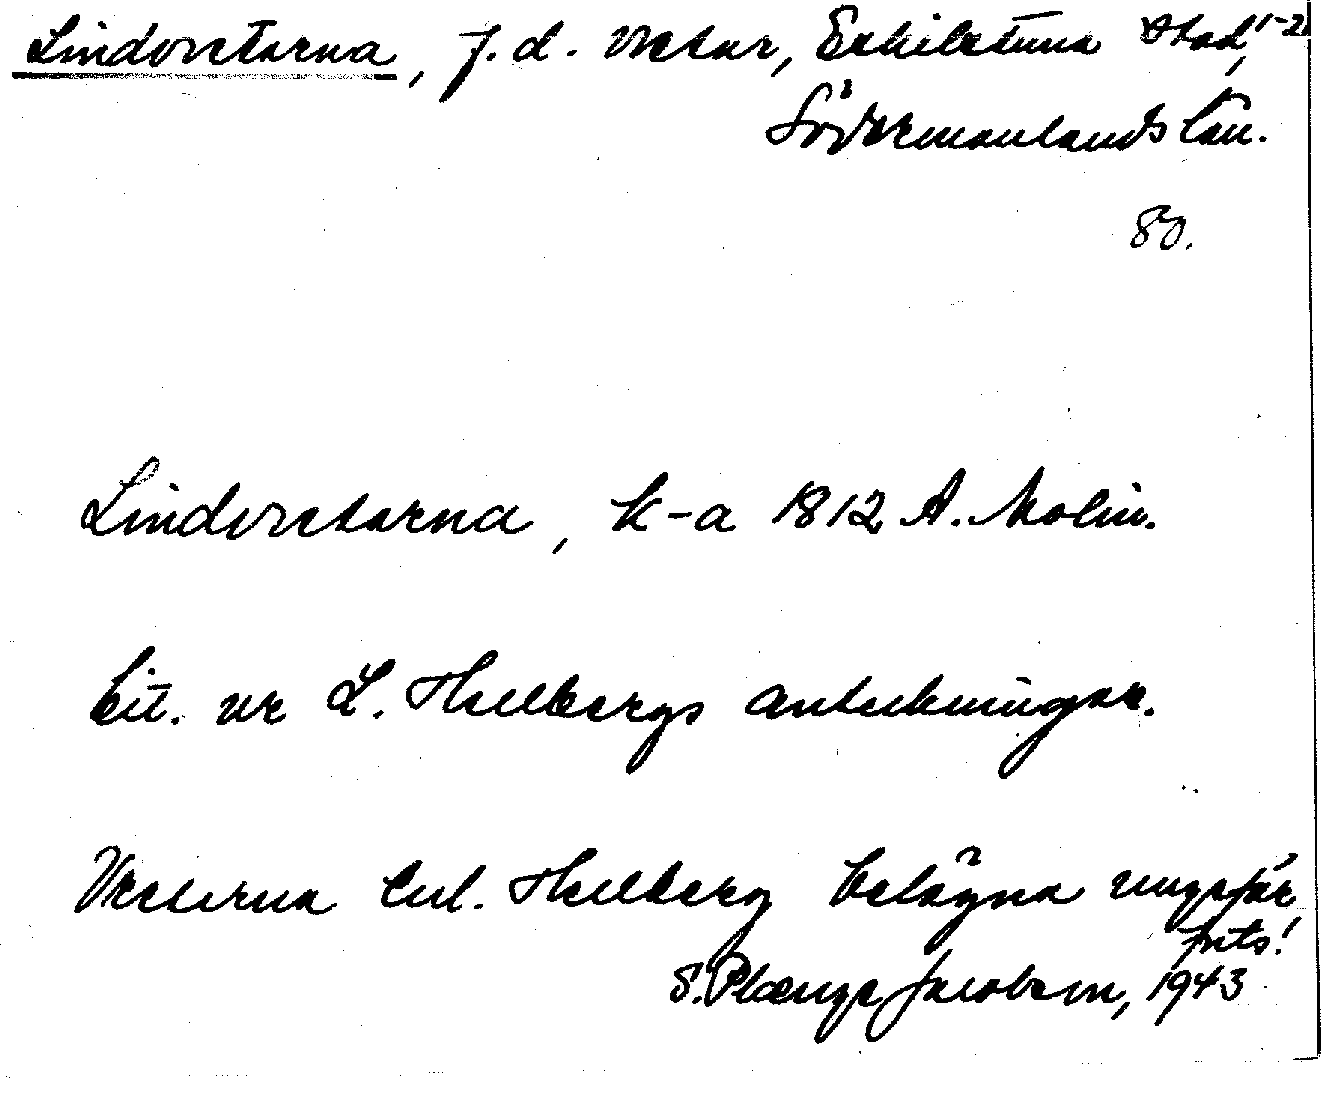 Lindvretarna, f.d. vretar, Eskilstuna stad, 1-2
Södermanlands län.
80.
Lindvretarna, k-a 1812 A. Molin.
Cit. ur L. Hellbergs anteckningar.
Vretarna enl. Hellberg belägna ungefär
forts!
S. Plænge Jacobson, 1943